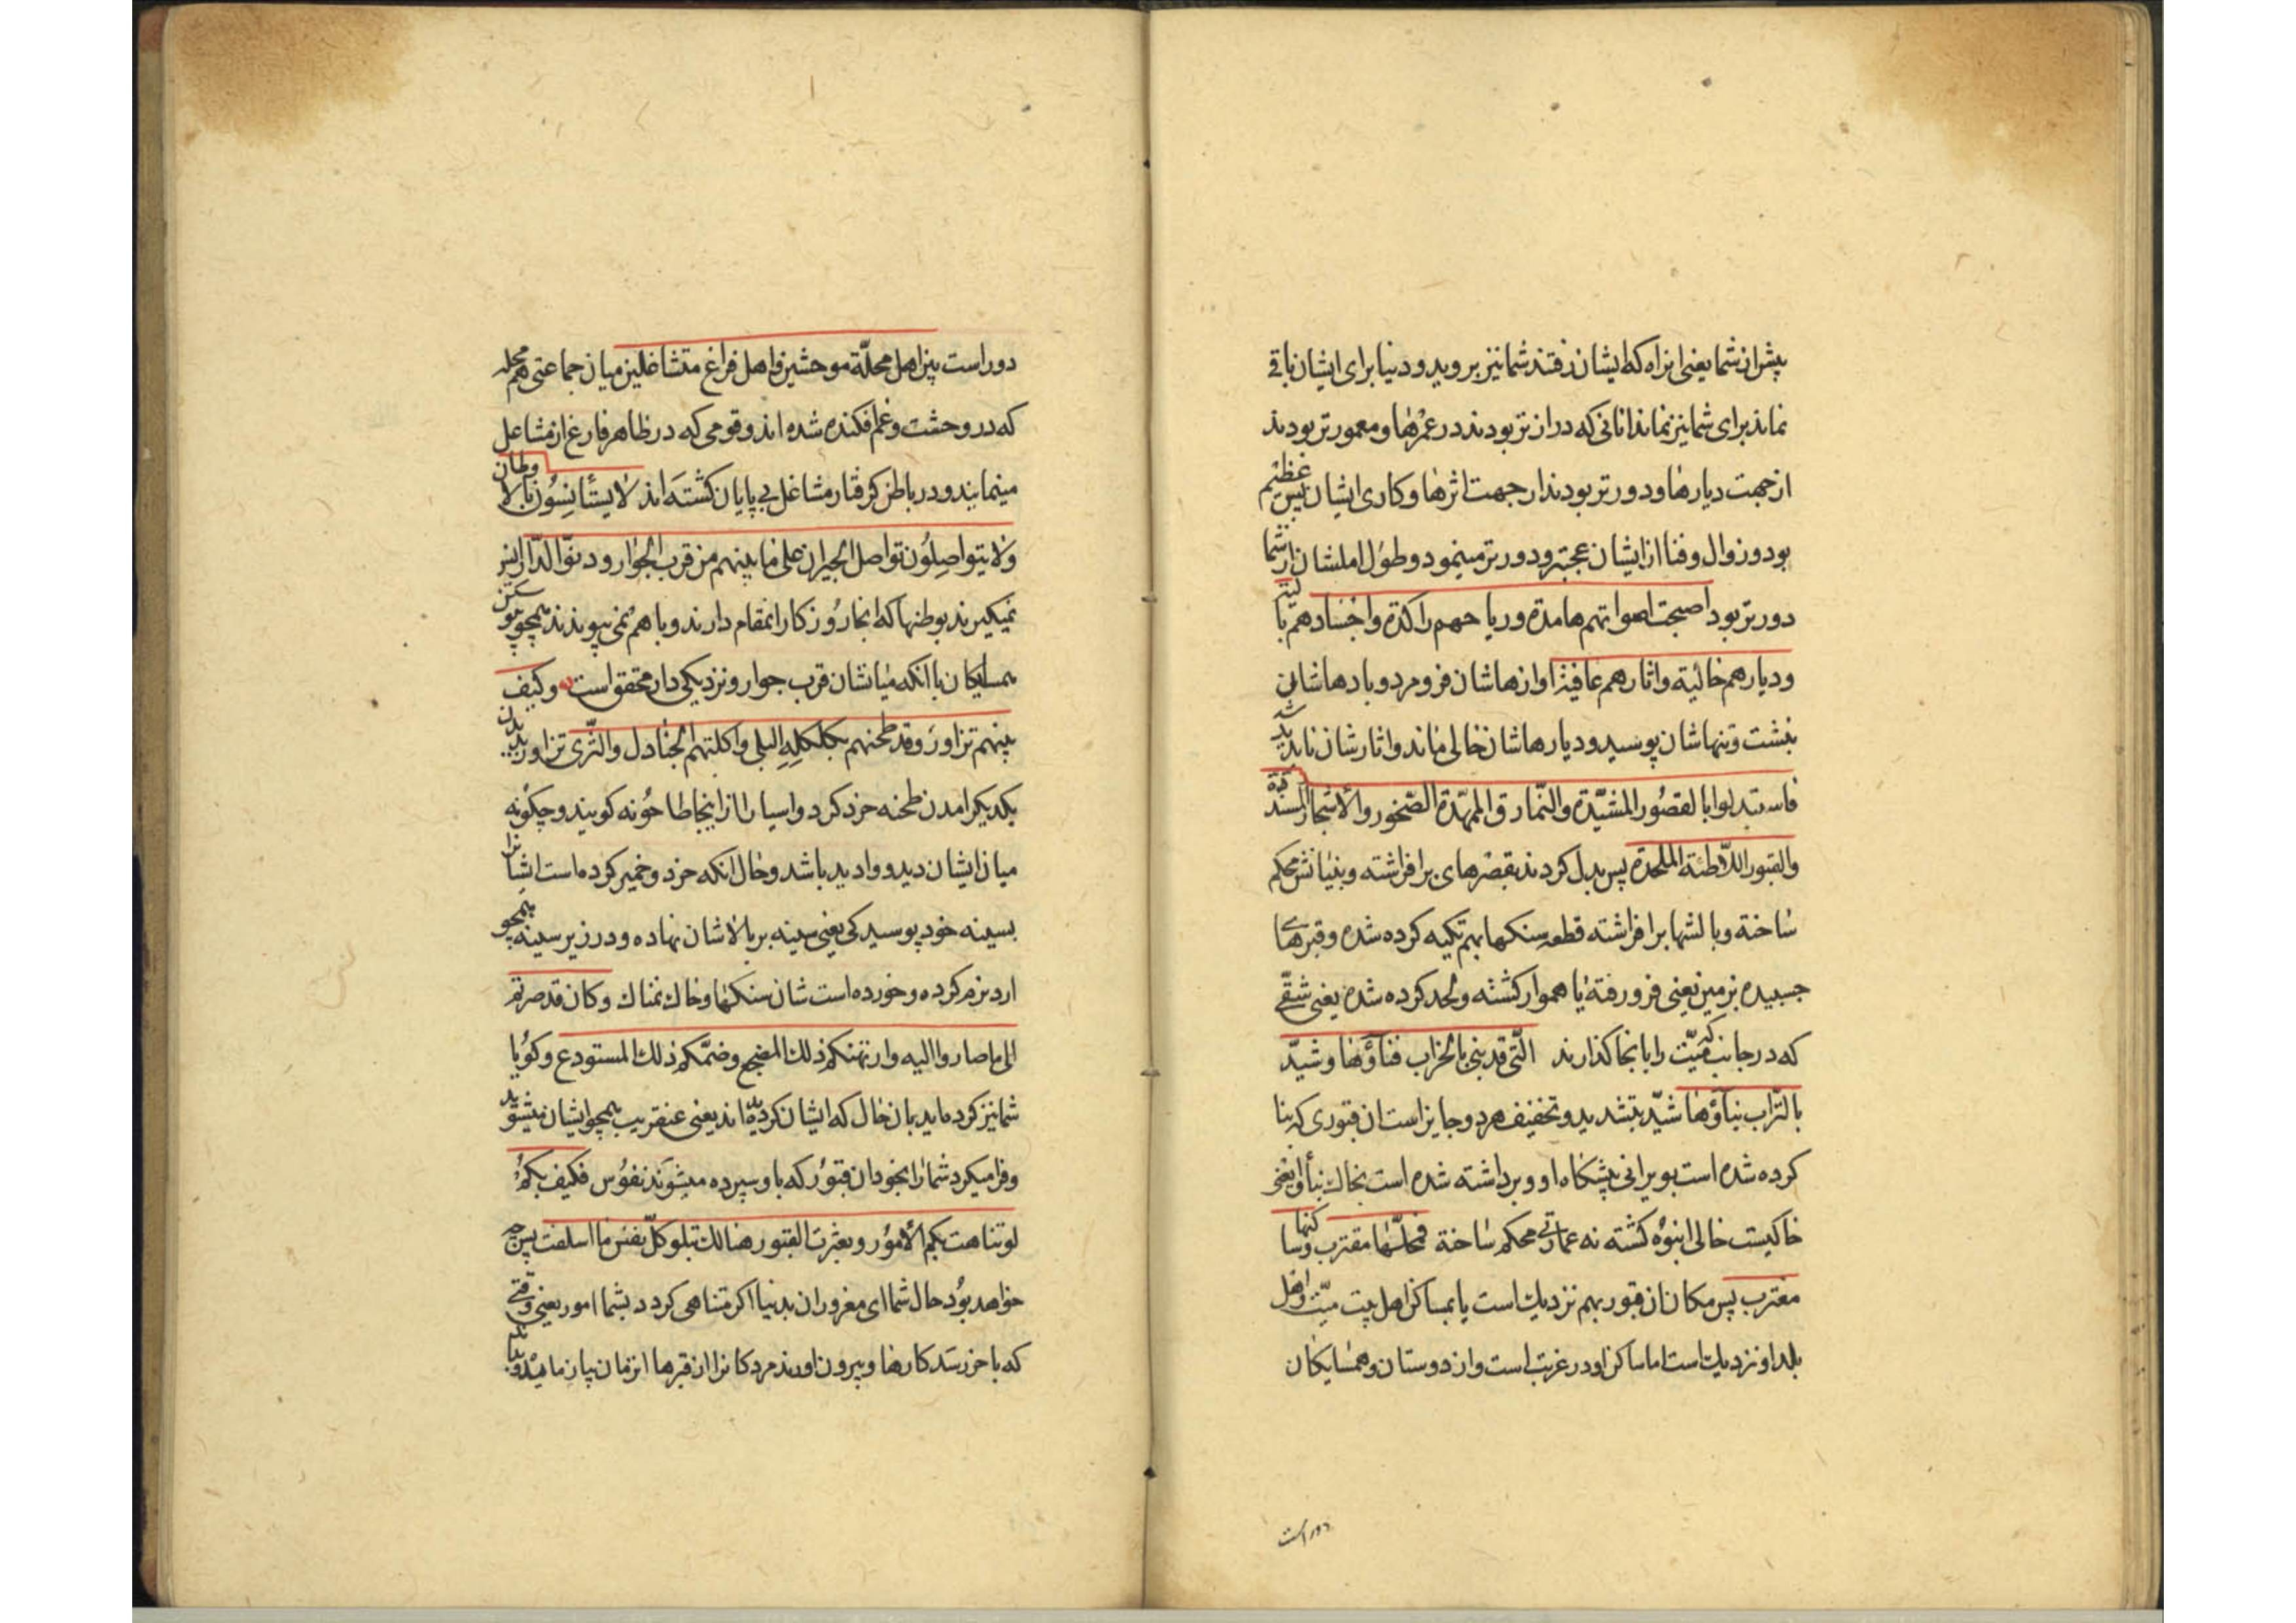 پیش از شما یعنی ازاه که ایشان رفتند شما نیز بروید و دنیا برای ایشان باقی
نماند برای شما نیز نماند انانی که دراز تر بودند در عمرها و معمور تر بودند
از جهت دیارها و دور تر بودند از جهت اثرها و کاری ایشان بس عظیم
بود و زوال و فنا از ایشان عجبتر و دور تر مینمود و طول املشان از شما
دور تر بود اصبحت اصواتهم هامدة و ریاحهم راکدة و اجسادهم بالیة
و دیارهم خالیة و اثارهم عافیة اوازهاشان فرو مرد و بادهاشان
بنشست و تنهاشان پوسید و دیارهاشان خالی ماند و اثارشان ناپدید شد
فاستبدلوا بالقصور المشیّدة و النّمارق الممهّدة الصّخور و الاحجار المسندة
و القبور اللاطئة الملحدة پس بدل کردند بقصرهای برافراشته و بنیانش محکم
ساخته و بالشها برافراشته قطعه سنکها بهم تکیه کرده شده و قبرهای
چسبیده بزمین یعنی فرو رفته یا هموار کشته و لحد کرده شده یعنی شقّی
که در جانب قبر میّت را بانجا کذارند الّتی قد بنی بالخراب فناؤها و شیّد
بالتّراب بناؤها شیّد بتشدید و تخفیف هردو جایز است ان قبوری که بنا
کرده شده است بویرانی پیشکاه او و برداشته شده است بخاک بناء او یعنی
خاکیست خالی انبوه کشته نه عمارتی محکم ساخته فمحلّها مقترب و ساکنها
مغترب پس مکان ان قبور بهم نزدیک است یا بمساکن اهل بیت میّت و اهل
بلد او نزدیک است اما ساکن او در غربت است و از دوستان و همسایکان
دور است
دور است بین اهل محلّة موحشین و اهل فراغ متشاغلین میان جماعتی هم محله
که در وحشت و غم افکنده شده اند و قومی که در ظاهر فارغ از مشاغل
مینمایند و در باطن کرفتار مشاغل بی پایان کشته اند لا یستأنسون بالاوطان
و لا یتواصلون تواصل الجیران علی ما بینهم من قرب الجوار و دنوّ الدّار انس
نمیکیرند بوطنها که انجا روزکار انمقام دارند و با هم نمی پیوندند همچو پیوستن
همسایکان با انکه میانشان قرب جوار و نزدیکی دار محقق است و کیف
بینهم تزاور و قد طحنهم بکلکله البلی و اکلتهم الجنادل و الثّری تزاور بدیدن
یکدیکر امدن طحنه خرد کرد و اسیا را از اینجا طاحونه کویند و چکونه
میان ایشان دید و وادید باشد و حال انکه خرد و خمیر کرده است ایشانرا
بسینه خود پوسیدکی یعنی سینه بر بالاشان نهاده و در زیر سینه همچو
ارد نرم کرده و خورده است شان سنکها و خاک نمناک و کان قد صرتم
الی ما صاروا الیه و ارتهنکم ذلک المضجع و ضمّکم ذلک المستودع و کویا
شما نیز کرده اید بان حال که ایشان کردیده اند یعنی عنقریب همچو ایشان میشوید
و فرا میکرد شما را بخود ان قبور که باو سپرده میشوند نفوس فکیف بکم
لو تناهت بکم الامور و بعثرت القبور هنالک تبلو کلّ نفس ما اسلفت پس چه
خواهد بود حال شما ای مغروران بدنیا اکر متناهی کردد بشما امور یعنی وقتی
که باخر رسد کارها و بیرون اورند مردکانرا از قبرها انزمان